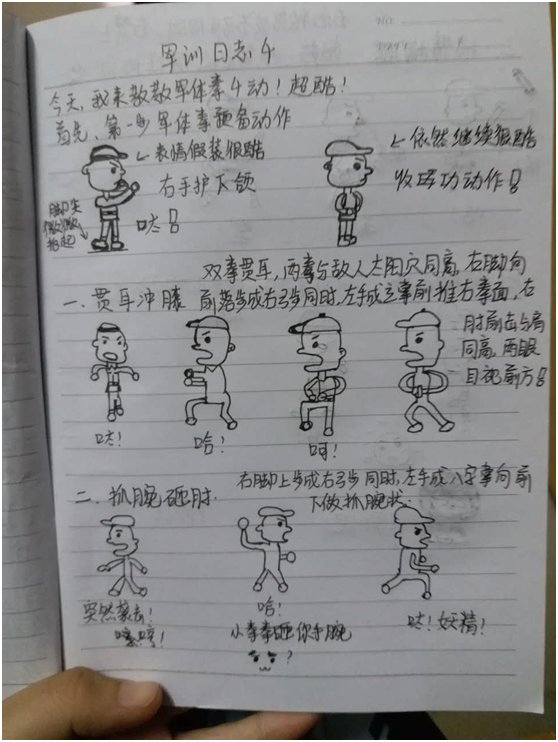 军训日志4
今天，我来教教军体拳4动！超酷！
首先，第一步军体拳预备动作
表情假装很酷
右手护下颌
哒！
脚尖
微微
抬起
依然继续很酷
收腿功动作！
双拳贯耳，两拳与敌人太阳穴同高，右脚向
一、贯耳冲膝 前落步成右弓步同时，左手成立掌前推右拳面，右
肘前击与肩
同高，两眼
目视前方！
哒！
哈！
呵！
二、抓腕砸肘.
右脚上步成右弓步同时，左手成八字掌向前
下做抓腕状.
突然袭击！
嘿哼！
哈！
小拳拳砸你手腕
？
哒！妖精！